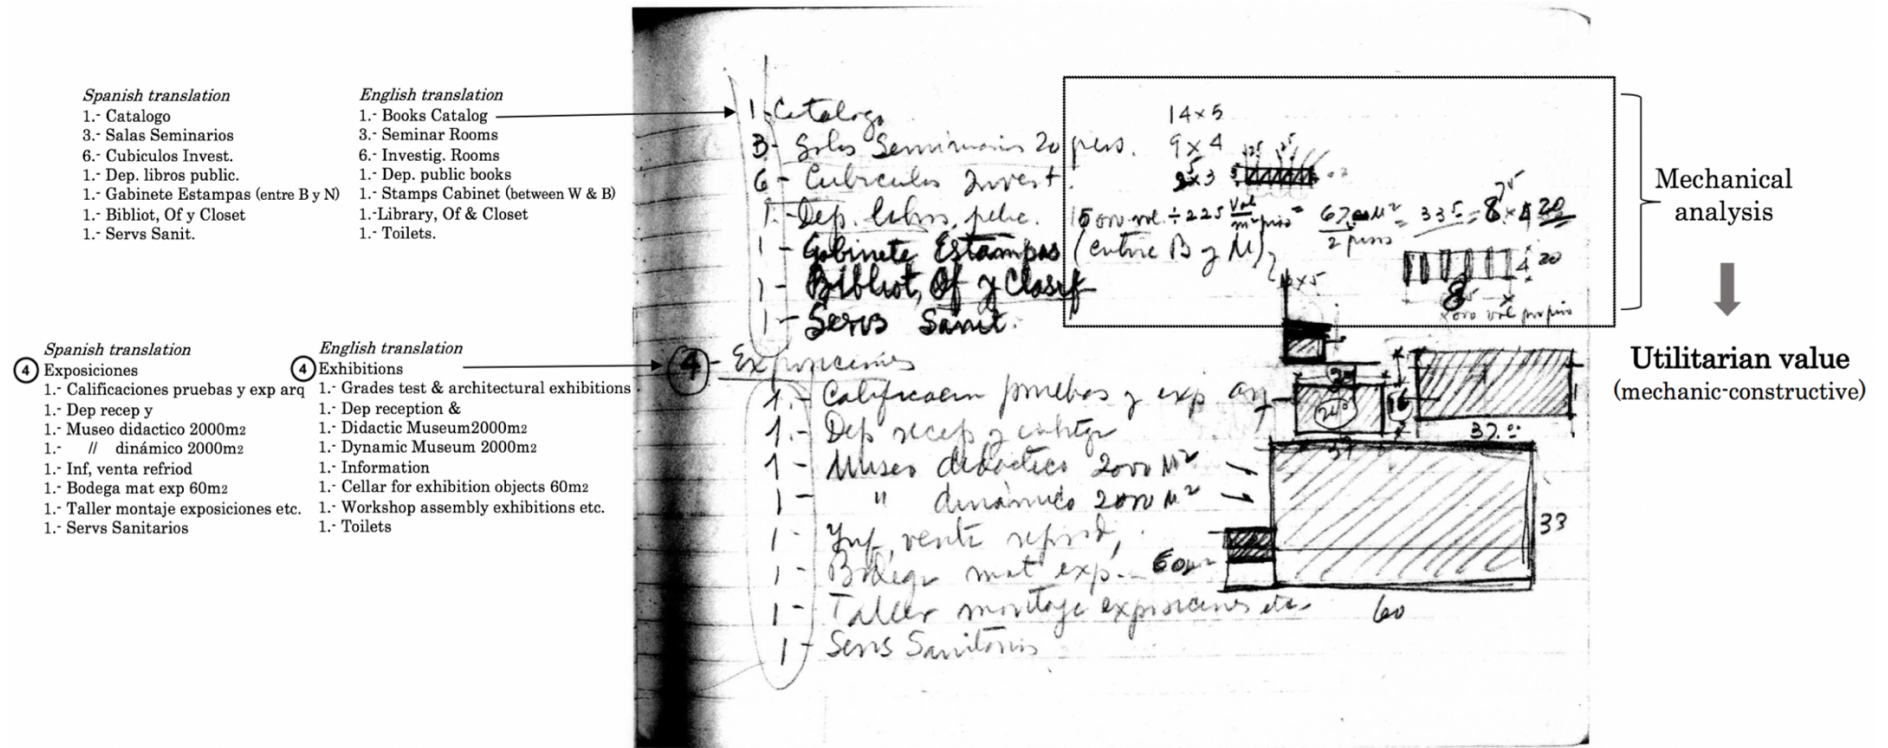 Spanish translation
1.- Catalogo
3.- Salas Seminarios
6.- Cubiculos Invest.
1.- Dep. libros public.
1.- Gabinete Estampas (entre B y N)
1.- Bibliot, Of y Closet
1.- Servs Sanit.
English translation
1.- Books Catalog
3.- Seminar Rooms
6.- Investig. Rooms
1.- Dep. public books
1.- Stamps Cabinet (between W & B)
1.-Library, Of & Closet
1.- Toilets.
Spanish translation
4 Exposiciones
1.- Calificaciones pruebas y exp arq
1.- Dep recep y
1.- Museo didactico 2000m2
1.- // dinámico 2000m2
1.- Inf, venta refriod
1.- Bodega mat exp 60m2
1.- Taller montaje exposiciones etc.
1.- Servs Sanitarios
English translation
4 Exhibitions
1.- Grades test & architectural exhibitions
1.- Dep reception &
1.- Didactic Museum2000m2
1.- Dynamic Museum 2000m2
1.- Information
1.- Cellar for exhibition objects 60m2
1.- Workshop assembly exhibitions etc.
1.- Toilets
1 - Catalogo
3 - Salas Seminarios 20 pers.
6 - Cubiculos Invest.
1 - Dep. libros pubc. 15000 vol. ÷ 225 vol
1 - Gabinete Estampas (entre B y N)
1 - Bibliot, Of y Clasif
1 - Servs Sanit.
14 x 5
9 x 4
2 pisos
335
20
8
4 - Exposiciones
1.- Calificacion pruebas y exp arq
1.- Dep recep y
1 - Museo didactico 2000 M2
1 - " dinámico 2000 M2
1 - Inf, venta
1 - Bodega mat exp - 60M2
1 - Taller montaje exposiciones etc.
1 - Servs Sanitarios
16
37.00
37
33
60
Mechanical
analysis
Utilitarian value
(mechanic-constructive)